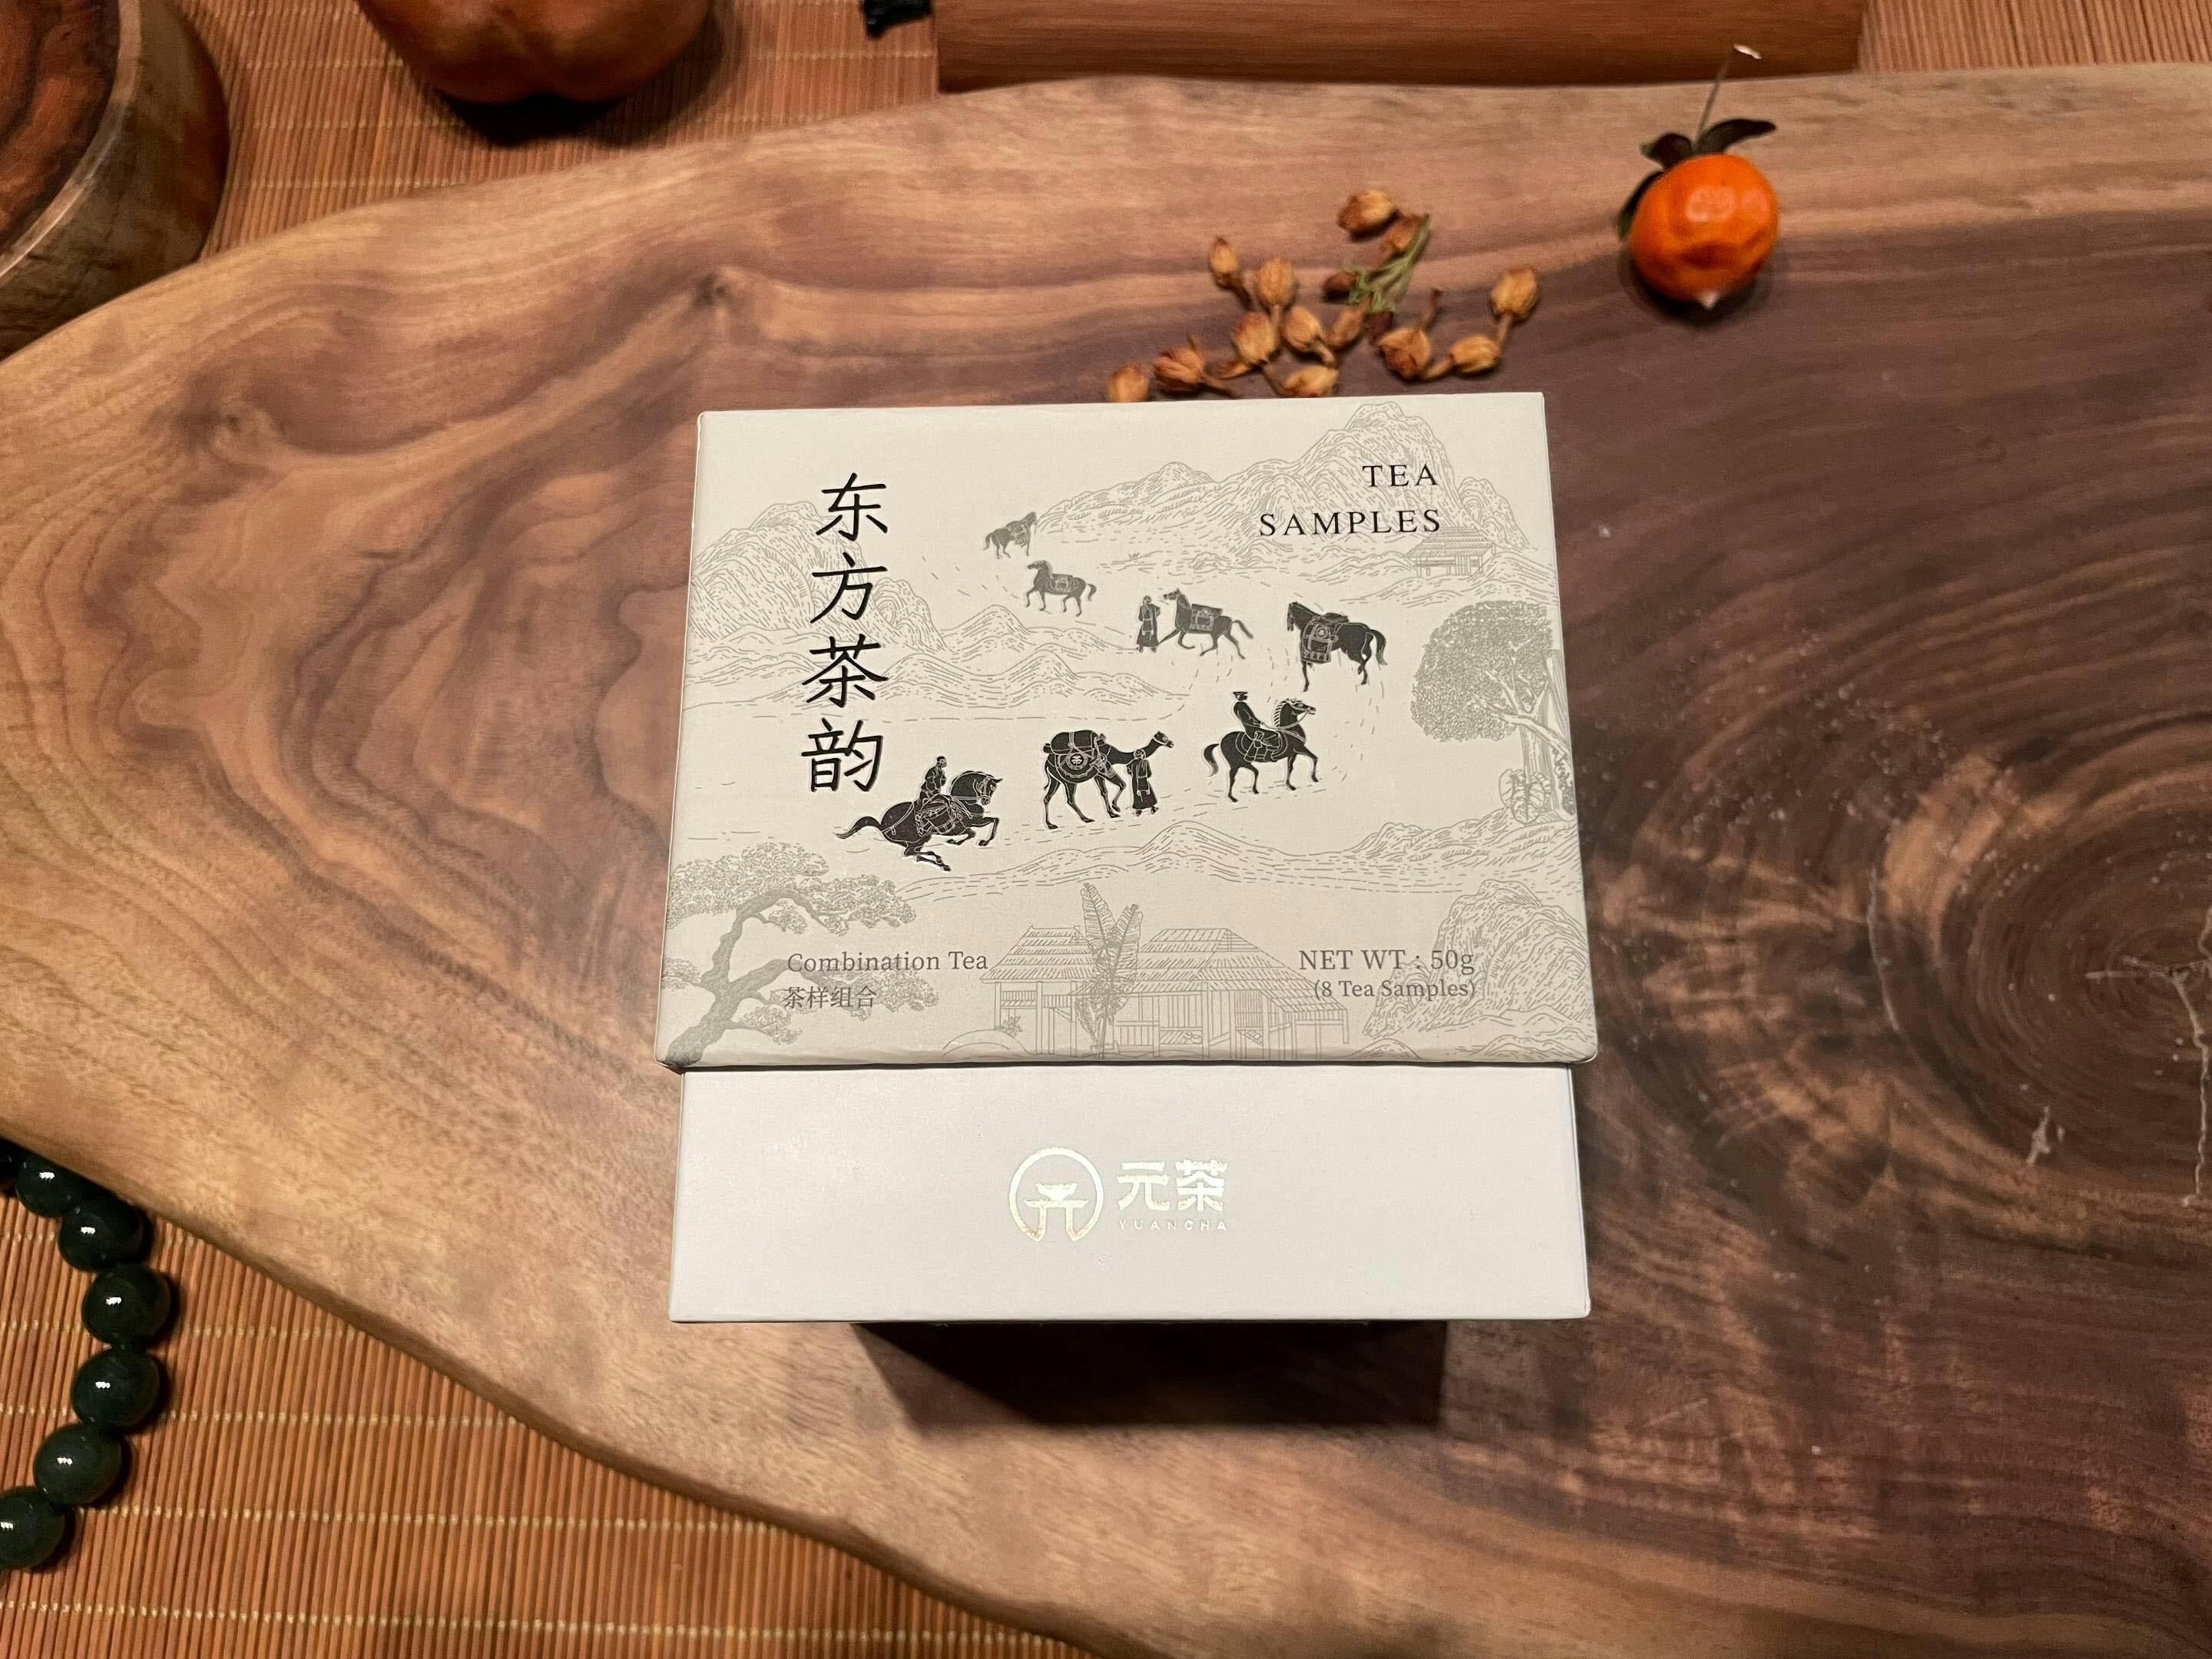 东方茶韵
TEA
SAMPLES
Combination Tea
茶样组合
NET WT : 50g
(8 Tea Samples)
元茶
YUANCHA